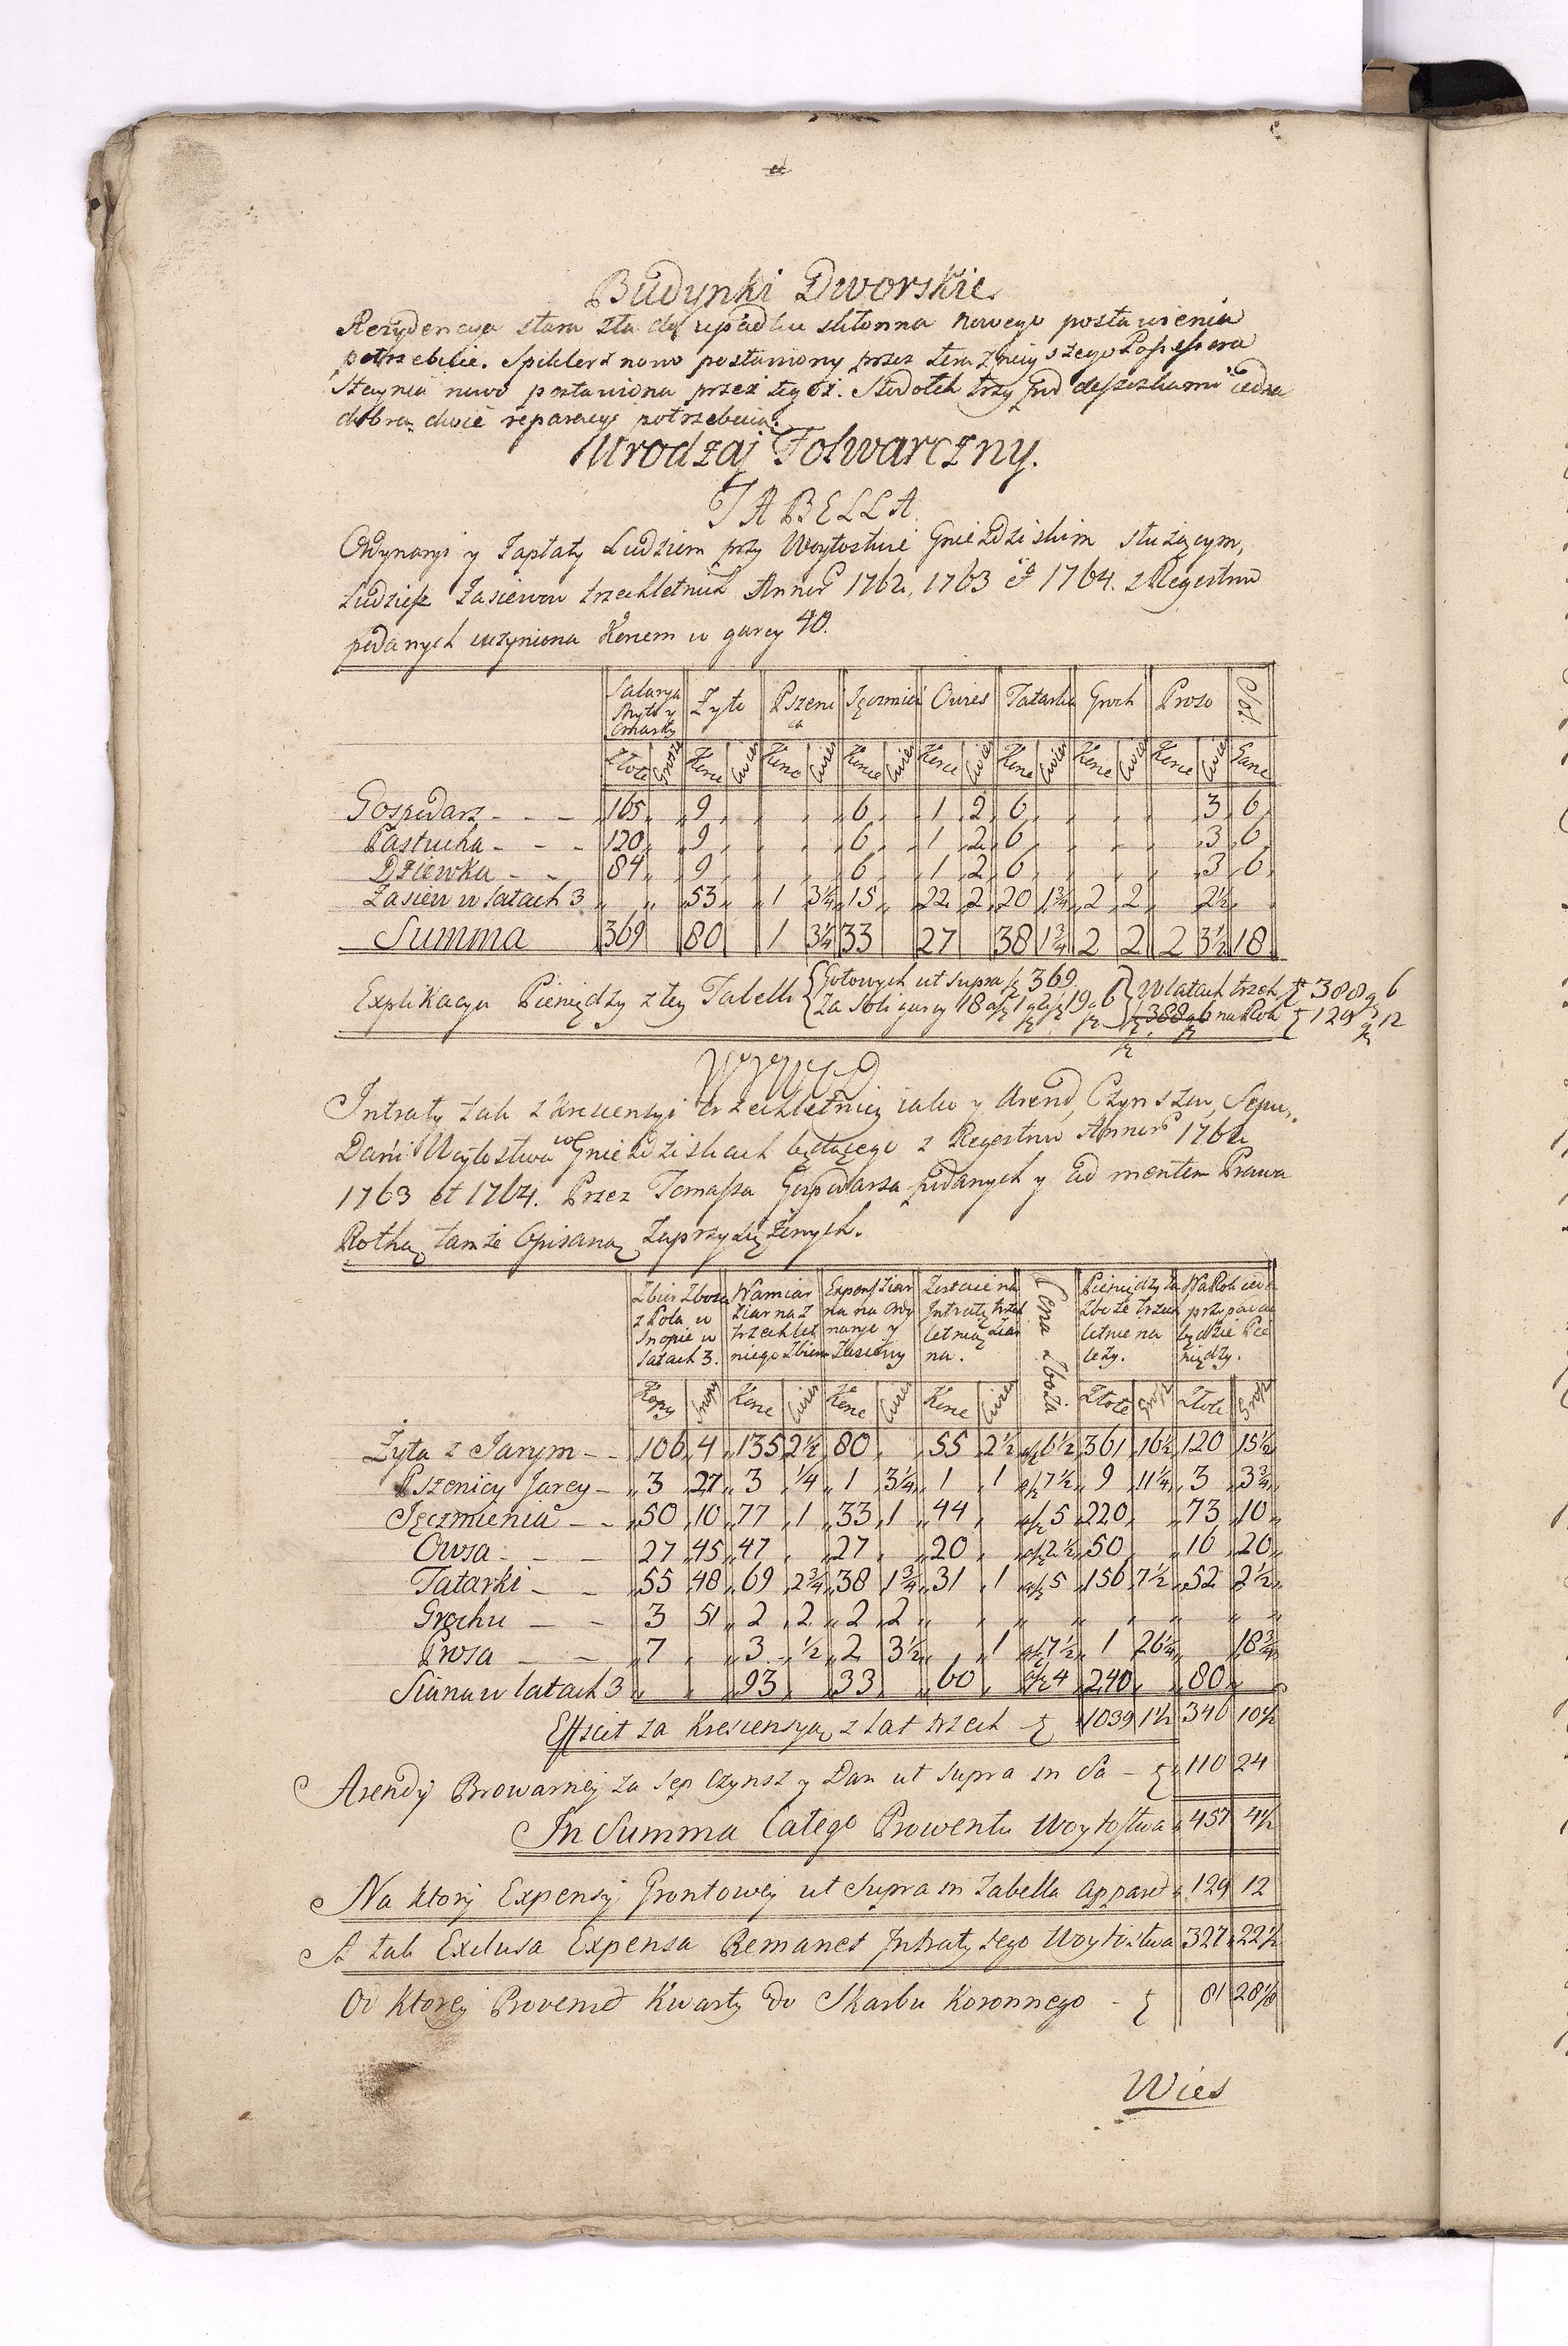 Budynki Dworskie.
Rezydencya stara zła do upadku skłonna nowego postawienia
potrzebuie. Spiklerz nowo postawiony przez teraznieyszego Possessora
Staynia nowo postawiona przez tegoż. Stodołek trzy pod dessczkami iedna
dobra, dwie reparacyi potrzebuią.
Urodzaj Folwarczny.
TABELLA
Ordynaryi y Zapłaty Ludziom przy Woytostwie Gniezdziskim służącym,
tudziesz Zasiewow trzechletnich Annor 1762, 1763 et 1764. z Regestrow
podanych uczyniona Korcem w garcy 40.
Salarya Myto y Żyto Pszeni Jęczmień Owies Tatarka Groch Proso Sol
ca
Złote Grosze Korce Cwier Korce Cwier Korce Cwier Korce Cwier Korce Cwier Korce Cwier Korce Cwier Garce
Gospodarz - - - 165 9 6 1 2 6 3 6
Pastucha - - - 120 9 6 1 2 6 3 6
Dziewka - - 84 9 6 1 2 6 3 6
Zasiew w latach 3 53 1 3¼ 15 22 2 20 1¾ 2 2 2½
Summa 369 80 1 3¼ 33 27 38 1¾ 2 2 2 3½ 18
Explikacya Pieniędzy z tey Tabelli Gotowych ut supra 369. W latach trzech 388 g 6
Za Soli garcy 18 19 6 388 g 6 na Rok 129 g 12
WYWOD
Intraty tak z Krescencyi trzechletniey iako y Arend, Czynszow, Sepu,
Dani Woytostwa w Gniezdziskach będącego z Regestrow Annor 1762
1763 et 1764. Przez Tomassa Gospodarza podanych y ad mentem Prawa
Rothą tamże Opisaną Zaprzysiężonych.
Zbior Zboza Wamiar Expens Ziar Zostaie na Cena Zboża Pieniędzy za Na Rok ieden
z Pola w Ziarna z na na Ordy Intratę trzech Zboże trzech przypada
Snopie w trzechlet nanję y letnią Ziar letnie na będzie Pie
latach 3. niego Zbioru Zasiewy na. leży. niędzy.
Kopy Snopy Korce Cwier Korce Cwier Korce Cwier Złote Grosz Złote Grosz
Żyta z Jarym - - 106 4 135 2½ 80 55 2½ 6½ 361 16½ 120 15½
Pszenicy Jarey - 3 27 3 ¼ 1 3¼ 1 1 7½ 9 11¼ 3 3¾
Jęczmienia - - 50 10 77 1 33 1 44 5 220 73 10
Owsa - - 27 45 47 27 20 2½ 50 16 20
Tatarki - - 55 48 69 2¾ 38 1¾ 31 1 5 156 7½ 52 2½
Grochu - - 3 51 2 2 2 2
Prosa - - 7 3 ½ 2 3½ 1 7½ 1 26¼ 18¾
Siana w latach 3 93 33 60 4 240 80
Efficit za Krescencyą z lat trzech - 1039 1½ 346 10½
Arendy Browarney za Sep Czynsz y Dan ut supra in Sa - 110 24
In Summa Całego Prowentu Woytostwa 457 4½
Na ktory Expensy Grontowey ut supra in Tabella apparet 129 12
A tak Exclusa Expensa Remanet Intraty tego Woytostwa 327 22½
Od ktorey Provenit Kwarty do Skarbu Koronnego - 81 28⅛
Wies